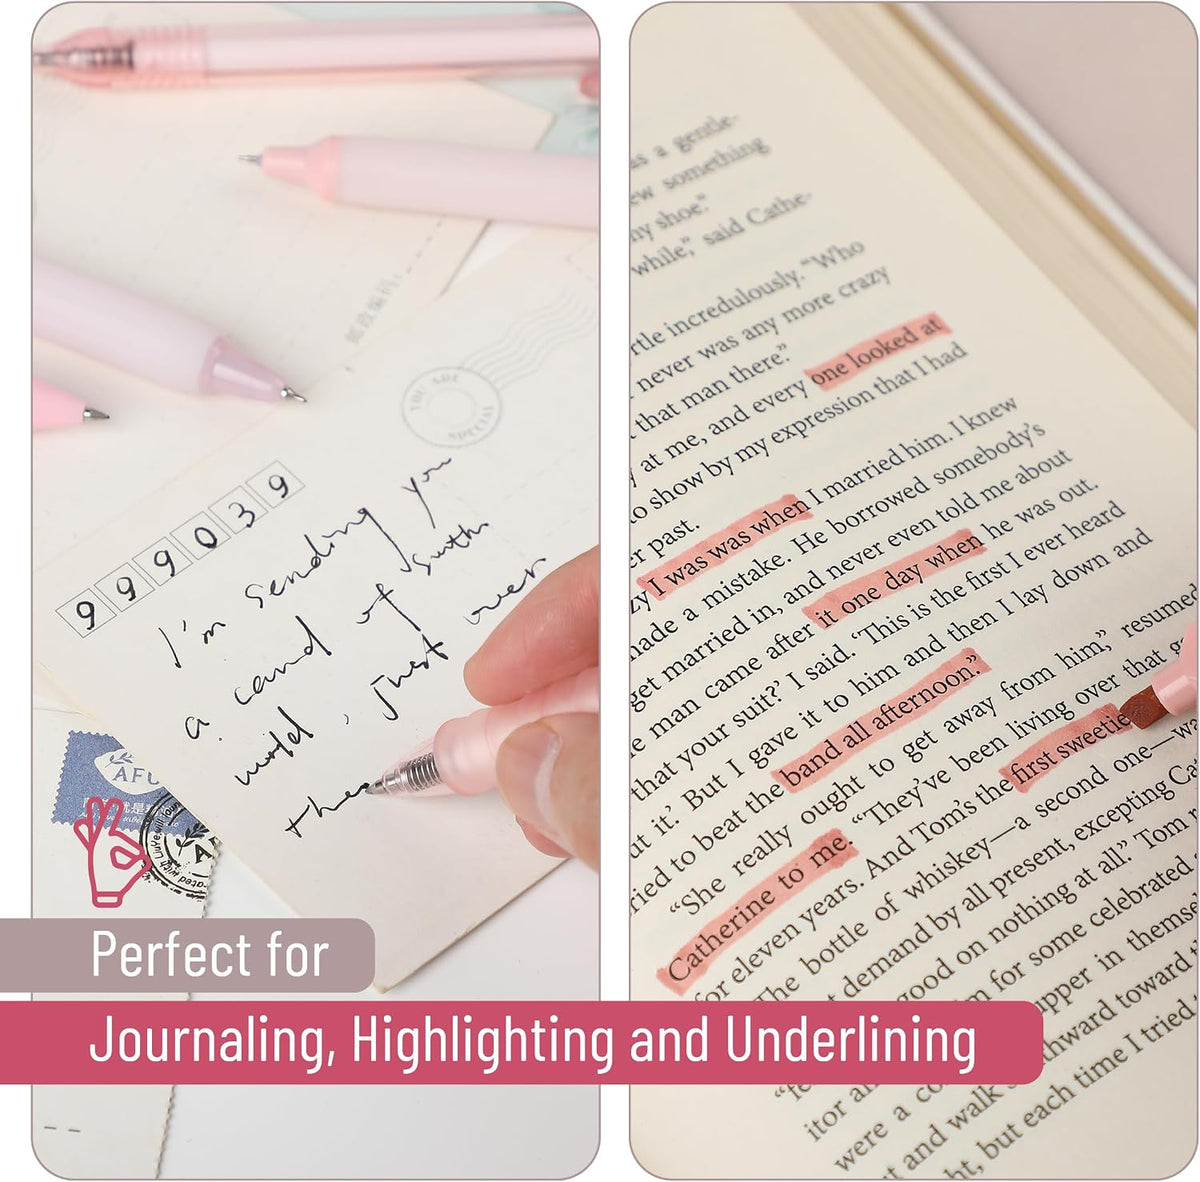 YOU ARE
SPECIAL
999039
I'm sending you
a card of
world, just over
郵政编码
AFU
Perfect for
Journaling, Highlighting and Underlining
as a gentle-
ew something
ny shoe."
while," said Cathe-
rtle incredulously. "Who
never was any more crazy
that man there."
y at me, and every one looked at
to show by my expression that I had
er past.
zy I was was when I married him. I knew
made a mistake. He borrowed somebody's
get married in, and never even told me about
e man came after it one day when he was out.
that your suit?' I said. 'This is the first I ever heard
ut it.' But I gave it to him and then I lay down and
ried to beat the band all afternoon."
"She really ought to get away from him," resumed
Catherine to me. "They've been living over that g
for eleven years. And Tom's the first sweetie
The bottle of whiskey—a second one—w
demand by all present, excepting Ca
good on nothing at all." Tom r
m for some celebrated
upper in themse
thward toward t
itor a
were a co
t and walk
ht, but each time I tried